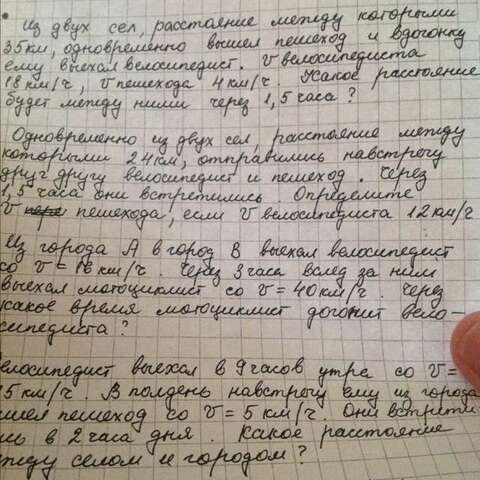 Из двух сел, расстояние между которыми
35 км, одновременно вышел пешеход и вдогонку
ему выехал велосипедист. V велосипедиста
18 км/ч, V пешехода 4 км/ч. Какое расстояние
будет между ними через 1,5 часа?
Одновременно из двух сел, расстояние между
которыми 24 км, отправились навстречу
друг другу велосипедист и пешеход. Через
1,5 часа они встретились. Определите
V пешехода, если V велосипедиста 12 км/ч
Из города А в город В выехал велосипедист
со V = 16 км/ч. Через 3 часа вслед за ним
выехал мотоциклист со V = 40 км/ч. Через
какое время мотоциклист догонит вело-
сипедиста?
елосипедист выехал в 9 часов утра со V =
5 км/ч. В полдень навстречу ему из города
шел пешеход со V = 5 км/ч. Они встрети
сь в 2 часа дня. Какое расстояние
жду селом и городом?